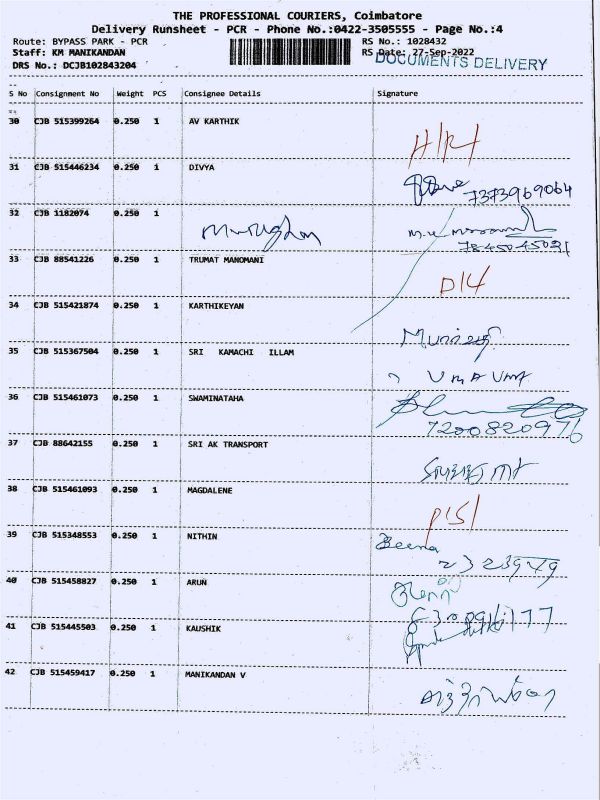 THE PROFESSIONAL COURIERS, Coimbatore
Delivery Runsheet - PCR - Phone No.:0422-3505555 - Page No.:4
Route: BYPASS PARK - PCR RS No.: 1028432
Staff: KM MANIKANDAN RS Date: 27-Sep-2022
DOCUMENTS DELIVERY
DRS No.: DCJB102843204
S No Consignment No Weight PCS Consignee Details Signature
30 CJB 515399264 0.250 1 AV KARTHIK
31 CJB 515446234 0.250 1 DIVYA
7373969064
32 CJB 1182074 0.250 1 Murughan
7845045091
33 CJB 88541226 0.250 1 TRUMAT MANOMANI
D14
34 CJB 515421874 0.250 1 KARTHIKEYAN
35 CJB 515367504 0.250 1 SRI KAMACHI ILLAM
36 CJB 515461073 0.250 1 SWAMINATAHA
7200820976
37 CJB 88642155 0.250 1 SRI AK TRANSPORT
38 CJB 515461093 0.250 1 MAGDALENE
39 CJB 515348553 0.250 1 NITHIN
Beena
40 CJB 515458827 0.250 1 ARUN
41 CJB 515445503 0.250 1 KAUSHIK
42 CJB 515459417 0.250 1 MANIKANDAN V